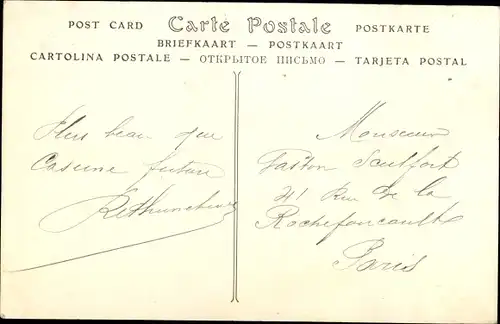 POST CARD Carte Postale POSTKARTE
BRIEFKAART — POSTKAART
CARTOLINA POSTALE — ОТКРЫТОЕ ПИСЬМО — TARJETA POSTAL
Plus beau que
Caserne future
Monsieur
Gaston
41 Rue de la
Rochefoucault
Paris